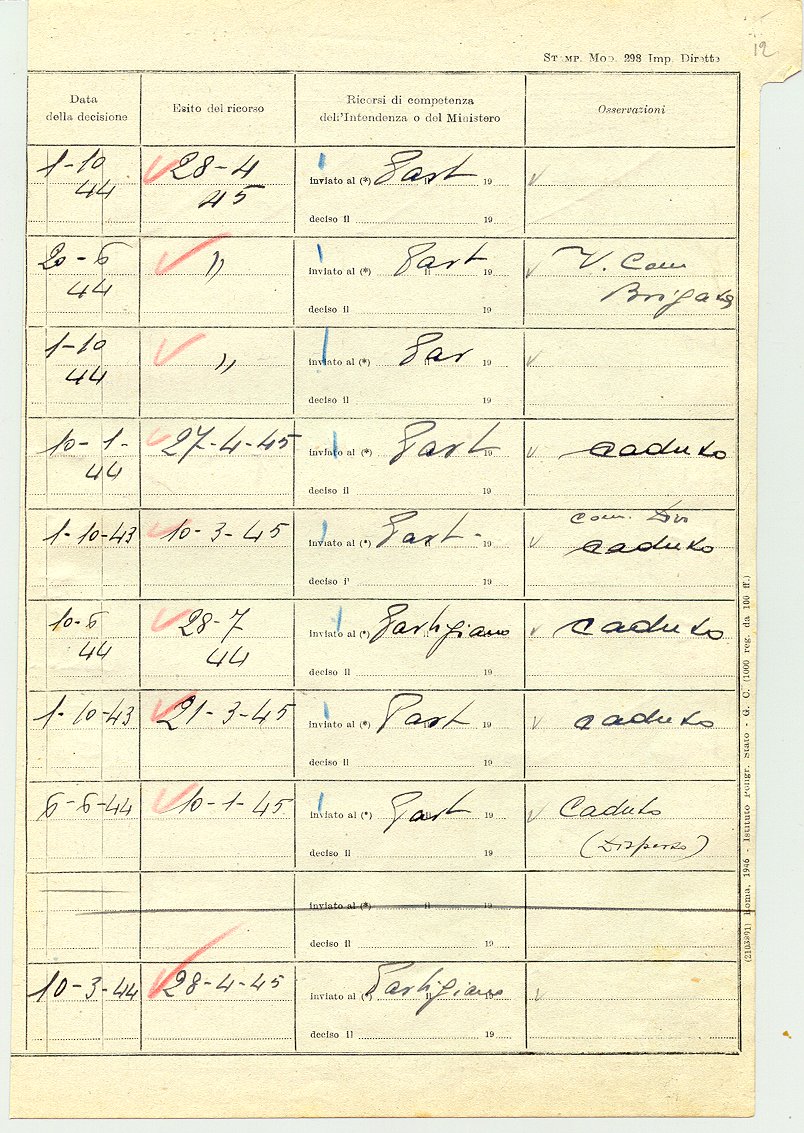 12
STAMP. MOD. 298 Imp. Dirette
Data della decisione
Esito del ricorso
Ricorsi di competenza dell'Intendenza o del Ministero
Osservazioni
1-10 44
28-4 45
inviato al (*) Part il 19
deciso il 19
20-6 44
"
inviato al (*) Part il 19
V. Com Brigata
deciso il 19
1-10 44
"
inviato al (*) Par il 19
deciso il 19
10-1- 44
27-4-45
inviato al (*) Part il 19
caduto
deciso il 19
1-10-43
10-3-45
inviato al (*) Part- il 19
Com. Div
caduto
deciso il 19
10-6 44
28-7 44
inviato al (*) Partigiano il 19
caduto
deciso il 19
1-10-43
21-3-45
inviato al (*) Part il 19
caduto
deciso il 19
6-6-44
10-1-45
inviato al (*) Part il 19
Caduto
(Disperso)
deciso il 19
inviato al (*) il 19
deciso il 19
10-3-44
28-4-45
inviato al (*) Partigiano 19
deciso il 19
(2103891) Roma, 1946 - Istituto Poligr. Stato - G. C. (1000 reg. da 100 ff.)